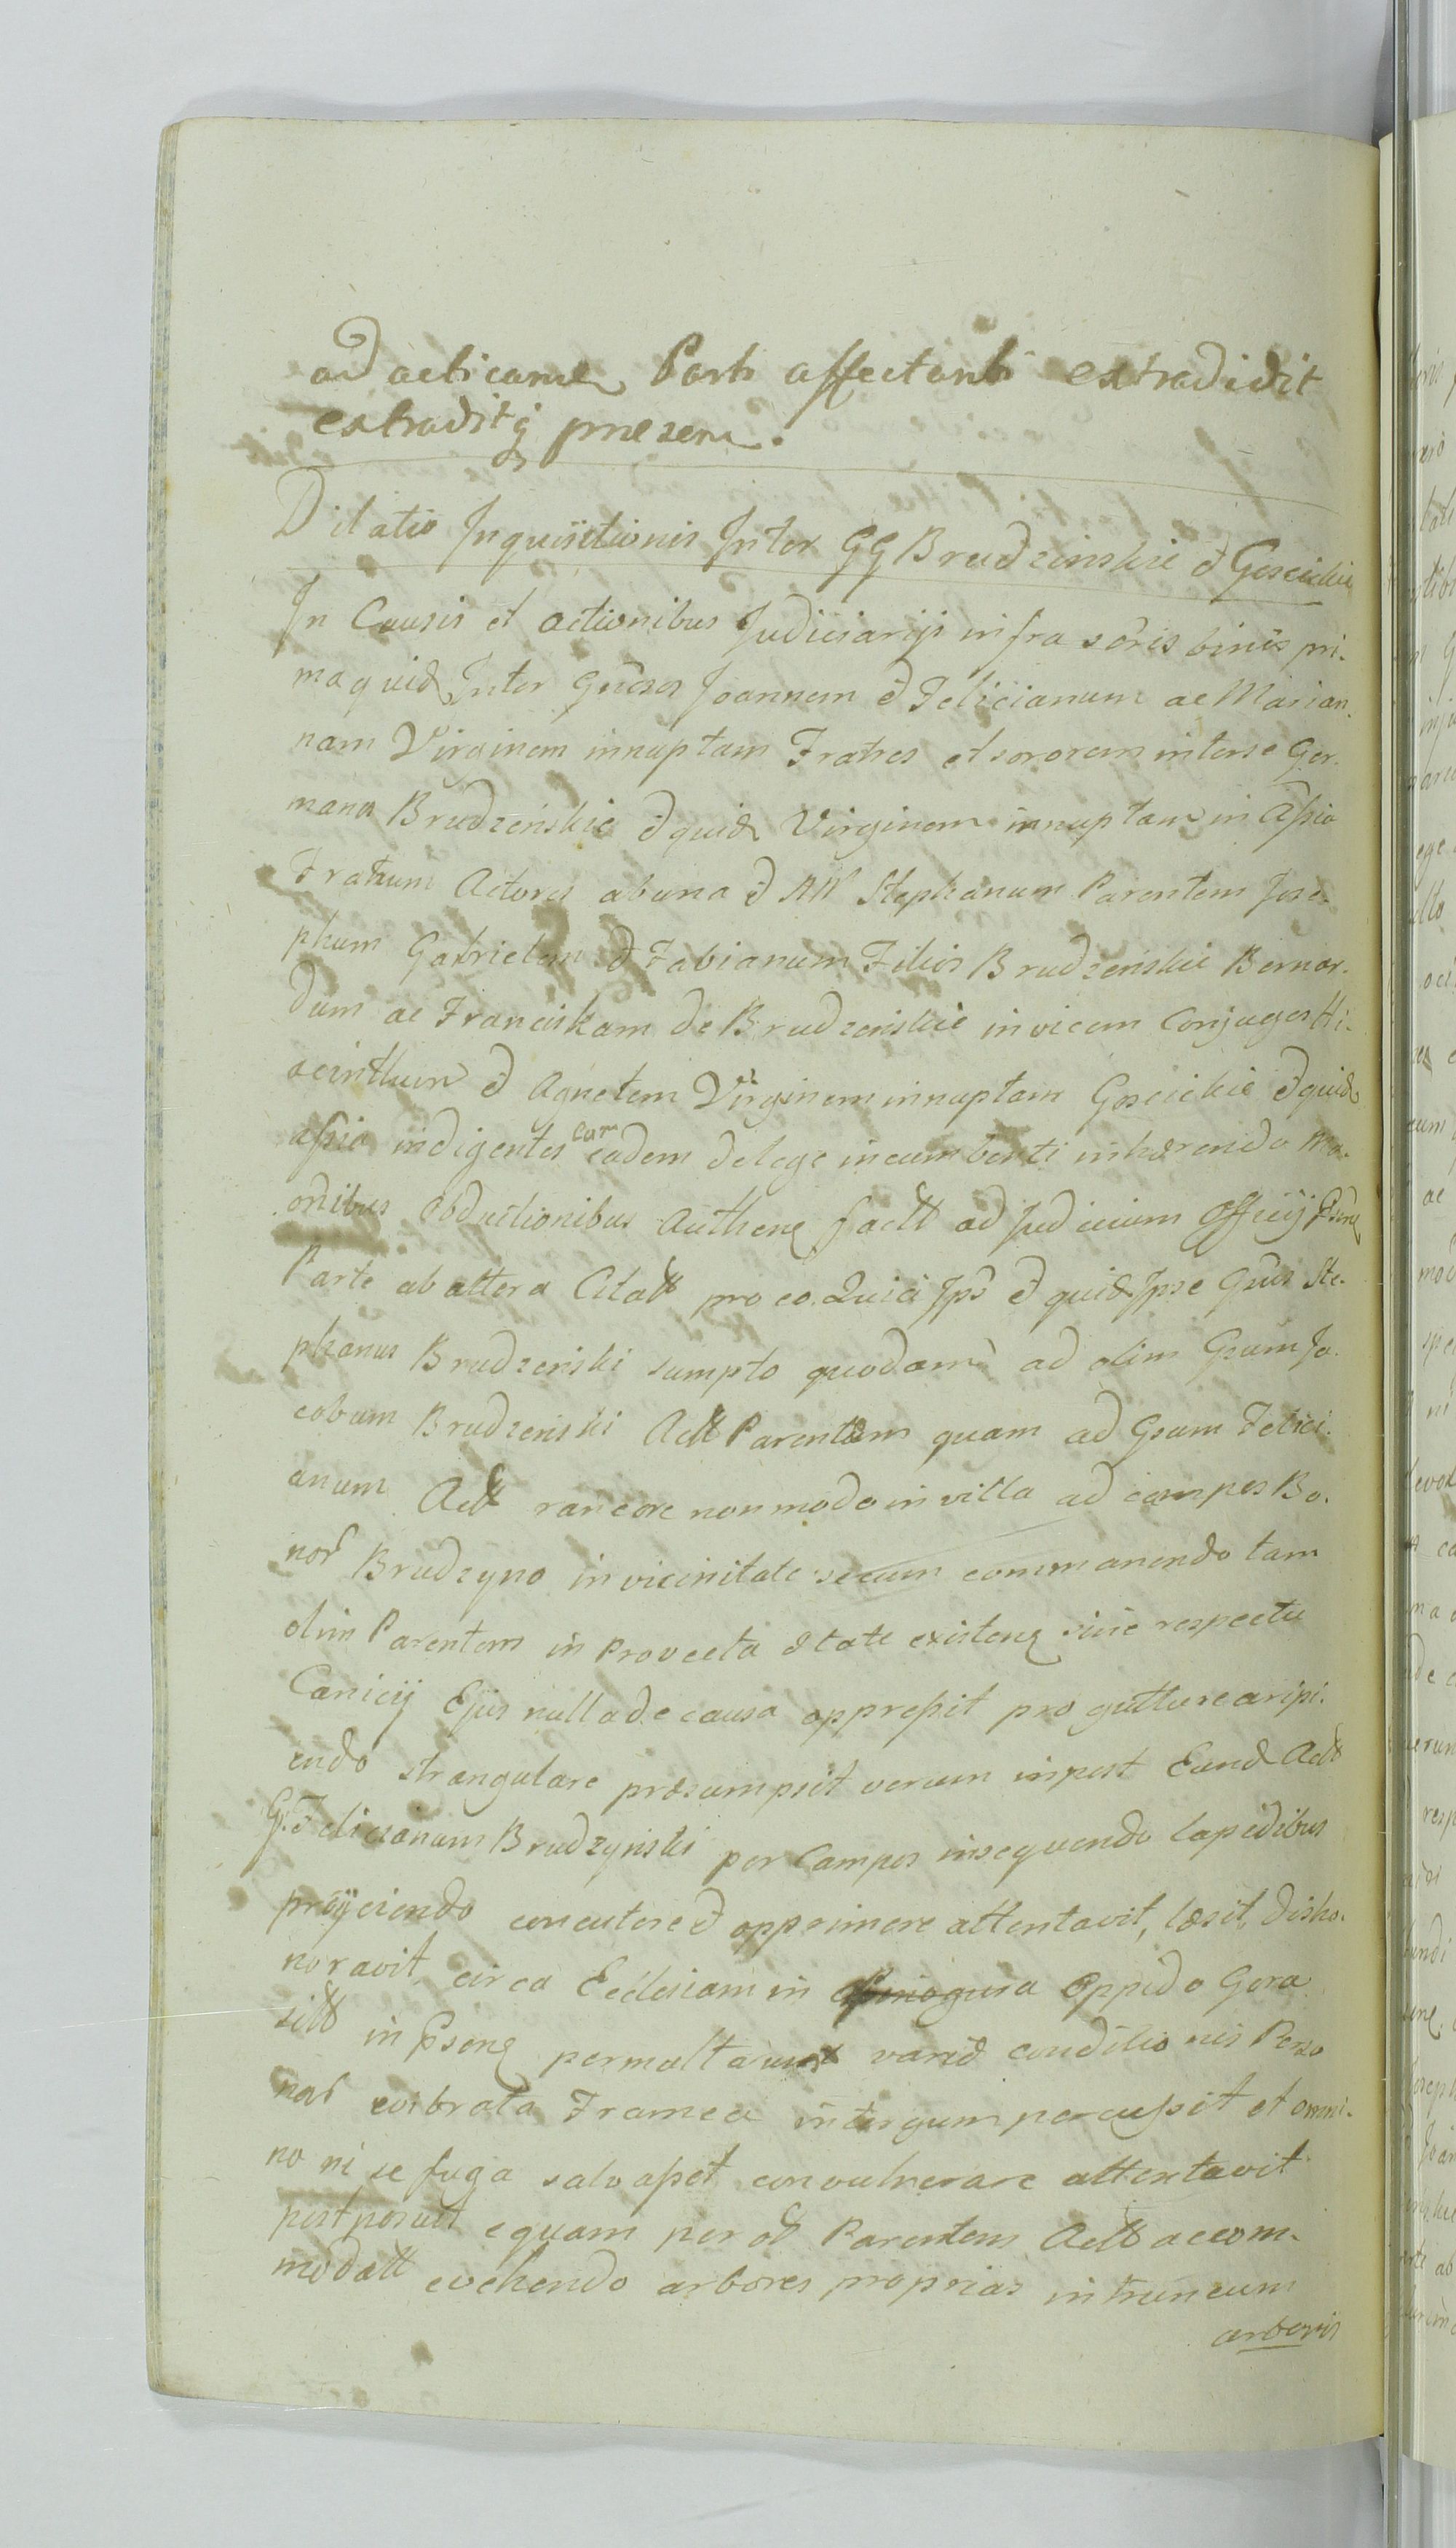 adacticame Parti affectanti extradidit
extraditq presens.
Dilatio Inquisitionis Inter GG Brudzinskie & Goscickie
In Causis et actionibus Judiciarijs infra scris binis pri-
ma quid Inter Gnrsos Joannem & Felicianum ac Marian-
nam Virginem innuptam Fratres et sororem interse Ger-
manos Brudzenskie & quid Virginem innuptam in Assia
Fratrum Actores abuna & Stephanum Parentem Jose-
phum Gabrielem & Fabianum Filios Brudzenskie Bernar-
dum ac Franciskam de Brudzenskie invicem Conjuges Hi-
acinthum & Agnetem Virginem innuptam Goscickie & quid
assia indigentes eam eadem delege incumbenti inhærendo
onibus obductionibus Authene factt ad Judicium Officij Psens
Parte ab altera Citatt pro eo. Quia Ips & quid Ipse Gsus Ste-
phanus Brudzenski sumpto quodam ad olim Gsum Ja-
cobum Brudzenski Actt Parentem quam ad Gsum Felici-
anum Actt rancore non modo in villa ad campos Bo-
nor Brudzyno in vicinitate secum commanendo tam
olim Parentem in Provecta ætate existens sine respectu
Caniciy Ejus nulla de causa oppressit pro gutture aripi-
endo strangulare præsumpsit verum inpost Eund Actt
G. Felicianum Brudzynski per Campos insequendo lapidibus
proijciendo concutere & opprimere attentavit, læsit, disho-
noravit, circa Ecclesiam in Oppido Gora
sitt in Psens permultarum variæ conditionis Perso
nar evibrata Framea intergum percussit et omni-
no ni se fuga salvasset convulnerare attentavit
postposuit equam per od Parentem Actt accom-
modatt evehendo arbores proprias in truncum
arboris